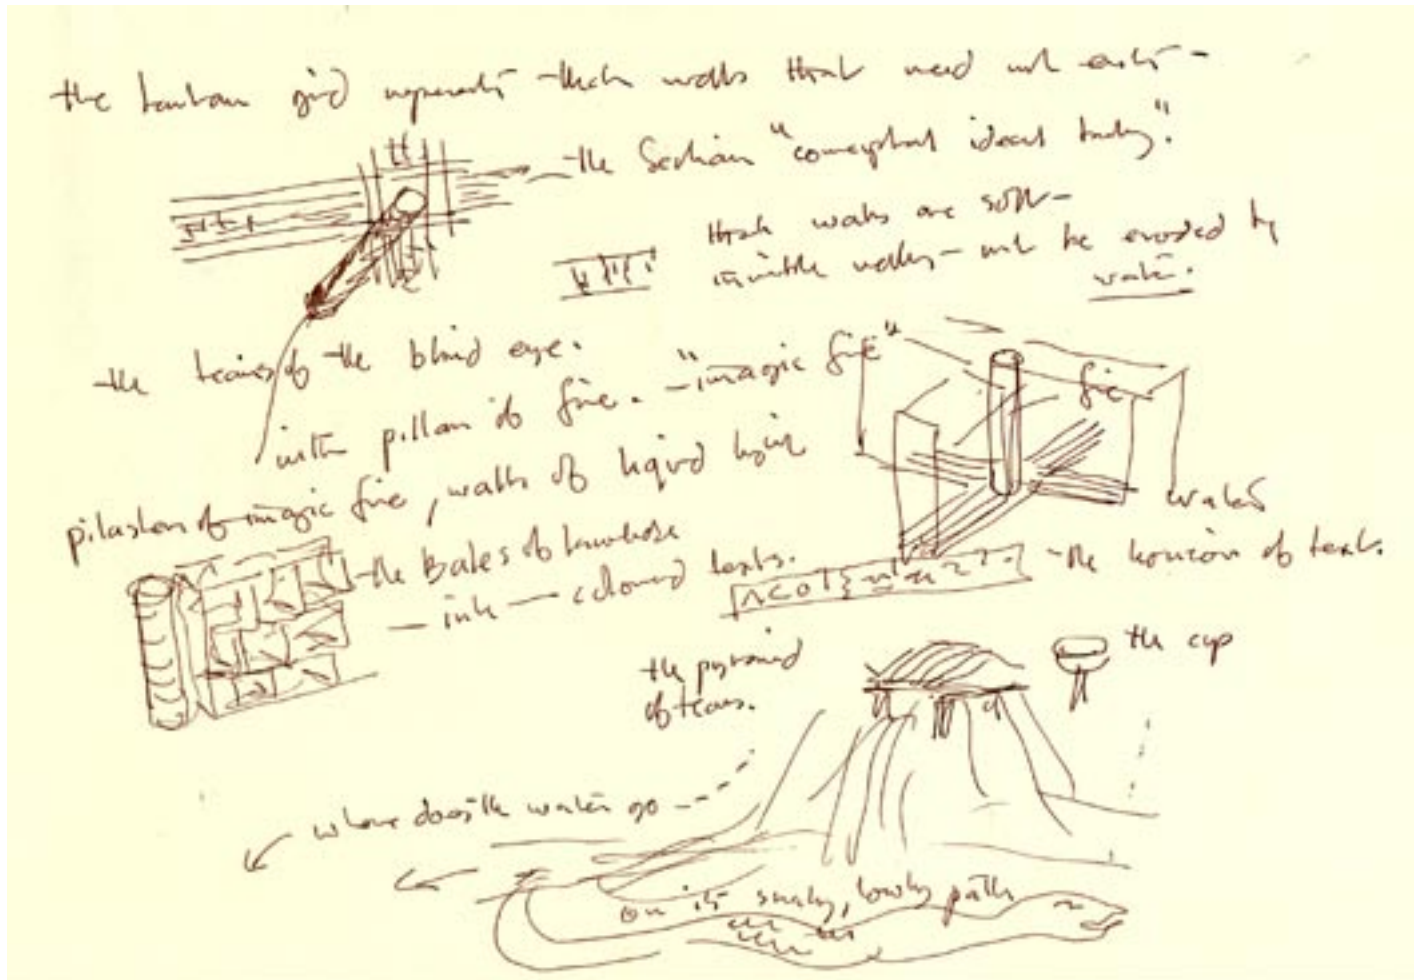 the grid that walls that need not exist -
the Serlian "conceptual ideal
walls are soft -
invisible walls - will be eroded by
water.
the tears of the blind eye.
with pillars of fire. - "magic fire"
fire
pilasters of magic fire, walls of liquid light
water
the Bales of
- ink - coloured texts.
- the horizon of text.
the pyramid
of tears.
the cup
where does the water go ---
on its snaky, lowly path